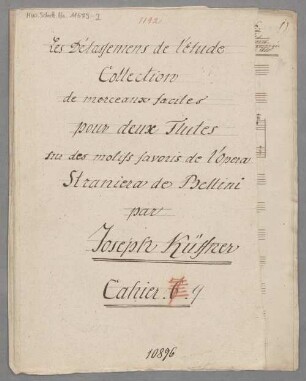 1192
Les Délassemens de l'étude
Collection
de morceaux faciles
pour deux Flutes
sur des motifs favoris de l'Opera
Straniera de Bellini
par
Joseph Küffner
Cahier. 9
10896